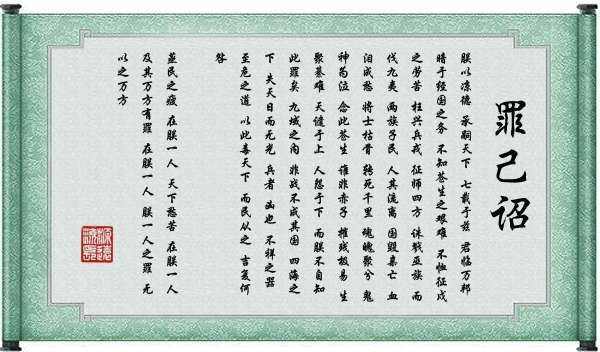 罪己诏
朕以凉德 承嗣天下 七载于兹 君临万邦
暗于经国之务 不知苍生之艰难 不恤征戍
之劳苦 枉兴兵戎 征师四方 诛戮巫族 而
伐九夷 两族子民 人其流离 国毁巢亡 血
泪成愁 将士枯骨 转死千里 魂魄聚兮 鬼
神为泣 念此苍生 谁非赤子 摧残极易 生
聚綦难 天谴于上 人怨于下 而朕不自知
此罪矣 九域之内 非战不成其国 四海之
下 失天日而无光 兵者 凶也 不祥之器
至危之道 以此毒天下 而民从之 言复何
咎
蒸民之疲 在朕一人 天下愁苦 在朕一人
及其万方有罪 在朕一人 朕一人之罪 无
以之万方